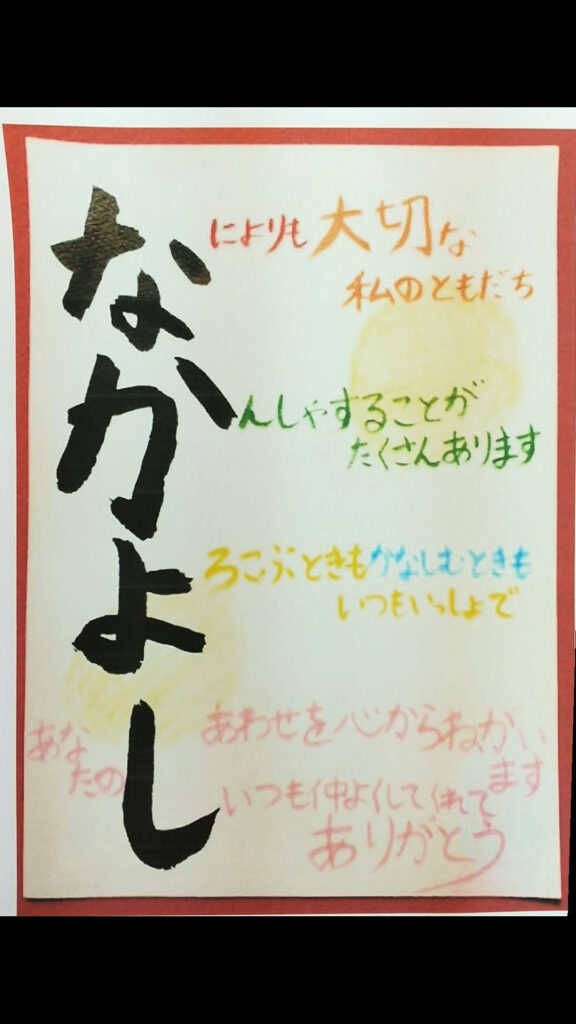 なかよし
によりも大切な
私のともだち
んしゃすることが
たくさんあります
ろこぶときもかなしむときも
いつもいっしょで
あな
たの
あわせを心からねがい
ます
いつも仲よくしてくれて
ありがとう